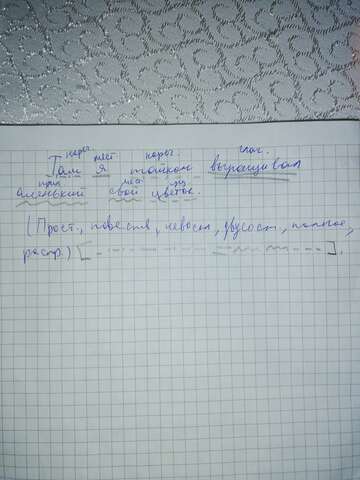 нареч. мест нареч. глаг.
Там я тайком выращивал
прил мест
аленький свой цветок.
(Прост., повеств, невоскл, двусост, полное,
распр.) [ ].